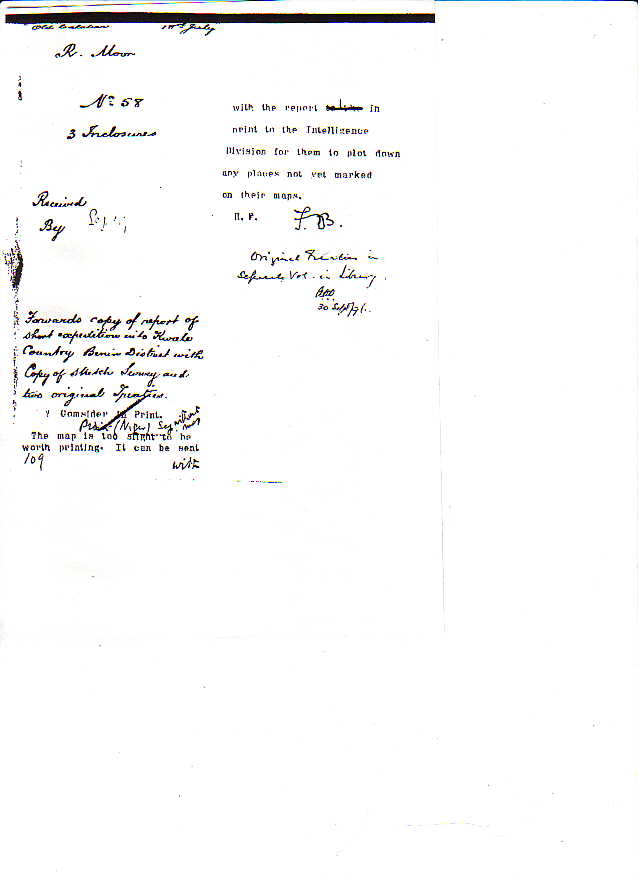 Old Calabar 18th July
R. Moor
No 58
3 Inclosures
Received
By
Forwards copy of report of
short expedition into Kwale
Country Benin District with
Copy of Sketch Survey and
two original Treaties.
? Consider in Print.
Print (Niger) Sep without map
The map is too slight to be
worth printing. It can be sent
109 with
with the report in
print to the Intelligence
Division for them to plot down
any places not yet marked
on their maps.
H. P. F.B.
Original Treaties in
Separate Vol. in Library.
30 Sept/